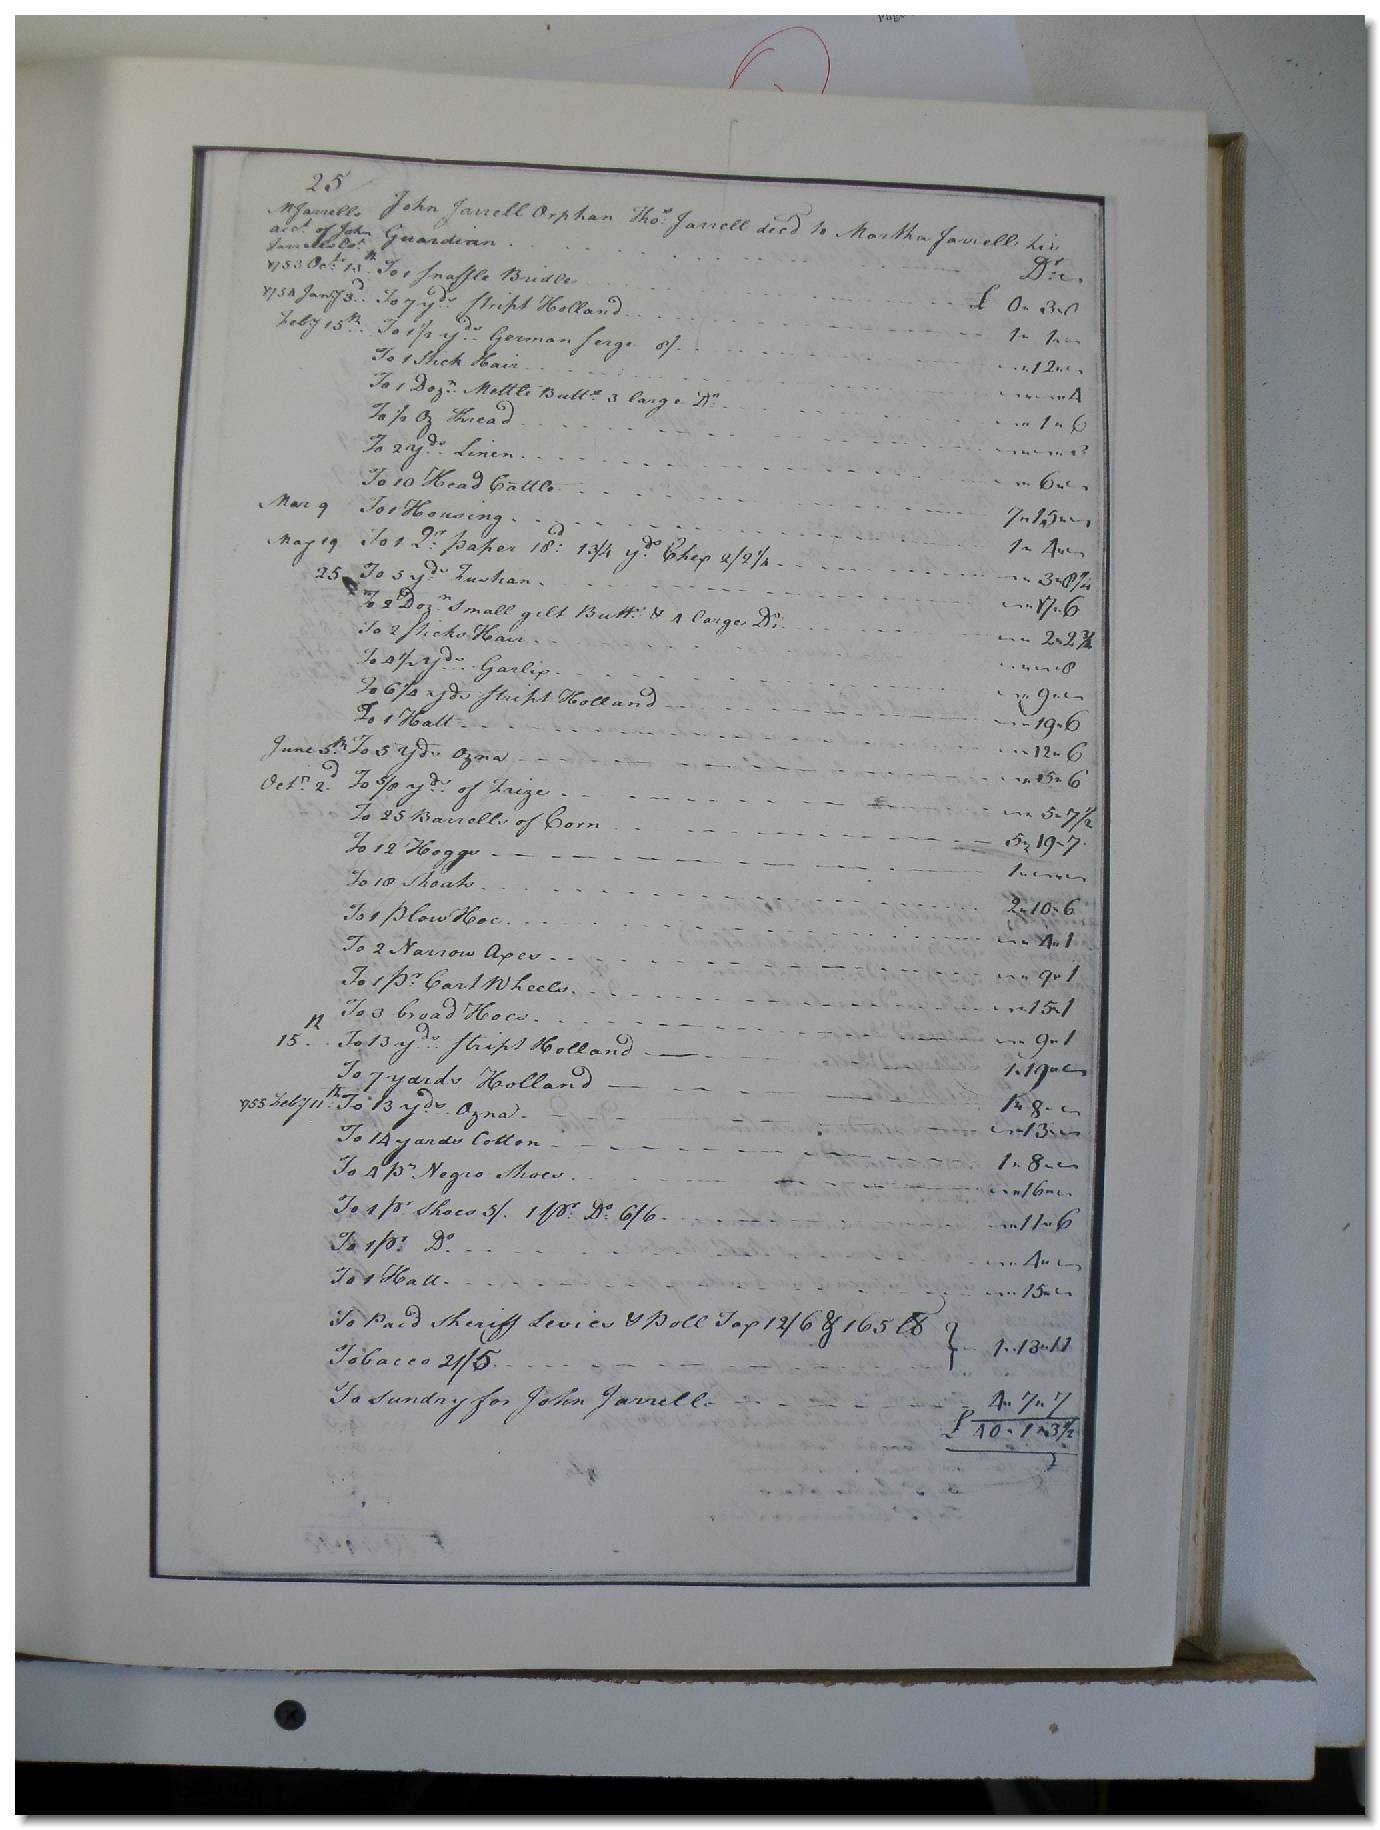 25
M Jarrells John Jarrell Orphan Tho.s Jarrell decd to Martha Jarrell his
acct. of John Guardian
Dr.
1753 Octr. 13th To 1 snaffle Bridle £ 0 " 3 " 0
1754 Jany 3d To 7 yds. stript Holland 1 " 1 "
Feby 15th To 1 1/2 yds. German serge 8/ " 12 "
To 1 Stick Hair " " 4
To 1 Dozn. Mettle Butts. 3 large Do. " 1 " 6
To Oz thread
To 2 yds. Linen " 6 "
To 10 Head Cattle 7 " 15 "
Mar 9 To 1 Housing 1 " 4 "
May 19 To 1 Qr. paper 18d. 1 3/4 yds Chex 2/2 1/4 " 3 " 8 1/4
25 To 5 yds. " 17 " 6
To 2 Dozn. small gilt Butts. & 4 large Do. " 2 " 2 3/4
To 2 sticks Hair " " 8
To 4 1/2 yds. Garlix " 9 "
To 6 1/2 yds stript Holland " 19 " 6
To 1 Hatt " 12 " 6
June 5th To 5 yds Ozna " 6
Octr. 2d To 5/8 yds. of frize " 5 " 7 1/2
To 25 Barrells of Corn 5 " 19 " 7
To 12 Hoggs 1 " "
To 18 Shoats 2 " 10 " 6
To 1 plow Hoe " 4 " 1
To 2 Narrow Axes " 9 " 1
To 1 pr. Cart Wheels " 15 " 1
To 3 broad Hoes " 9 " 1
15th To 13 yds. stript Holland 1 " 19 "
To 7 yards Holland 1 " 8 "
1755 Feby 11th To 13 yds. Ozna. " 13 "
To 14 yards Cotton 1 " 8 "
To 4 pr Negro Shoes " 16 "
To 1 pr shoes 5/. 1 pr. Do. 6/6 " 11 " 6
To 1 pr. Do. " 4 "
To 1 Hatt " 15 "
To Paid Sheriff Levies & Poll Tax 12/6 & 165 lb
Tobacco 21/5 1 " 13 " 11
To sundry for John Jarrell 4 " 7 " 7
£ 40 " 1 " 3 1/2